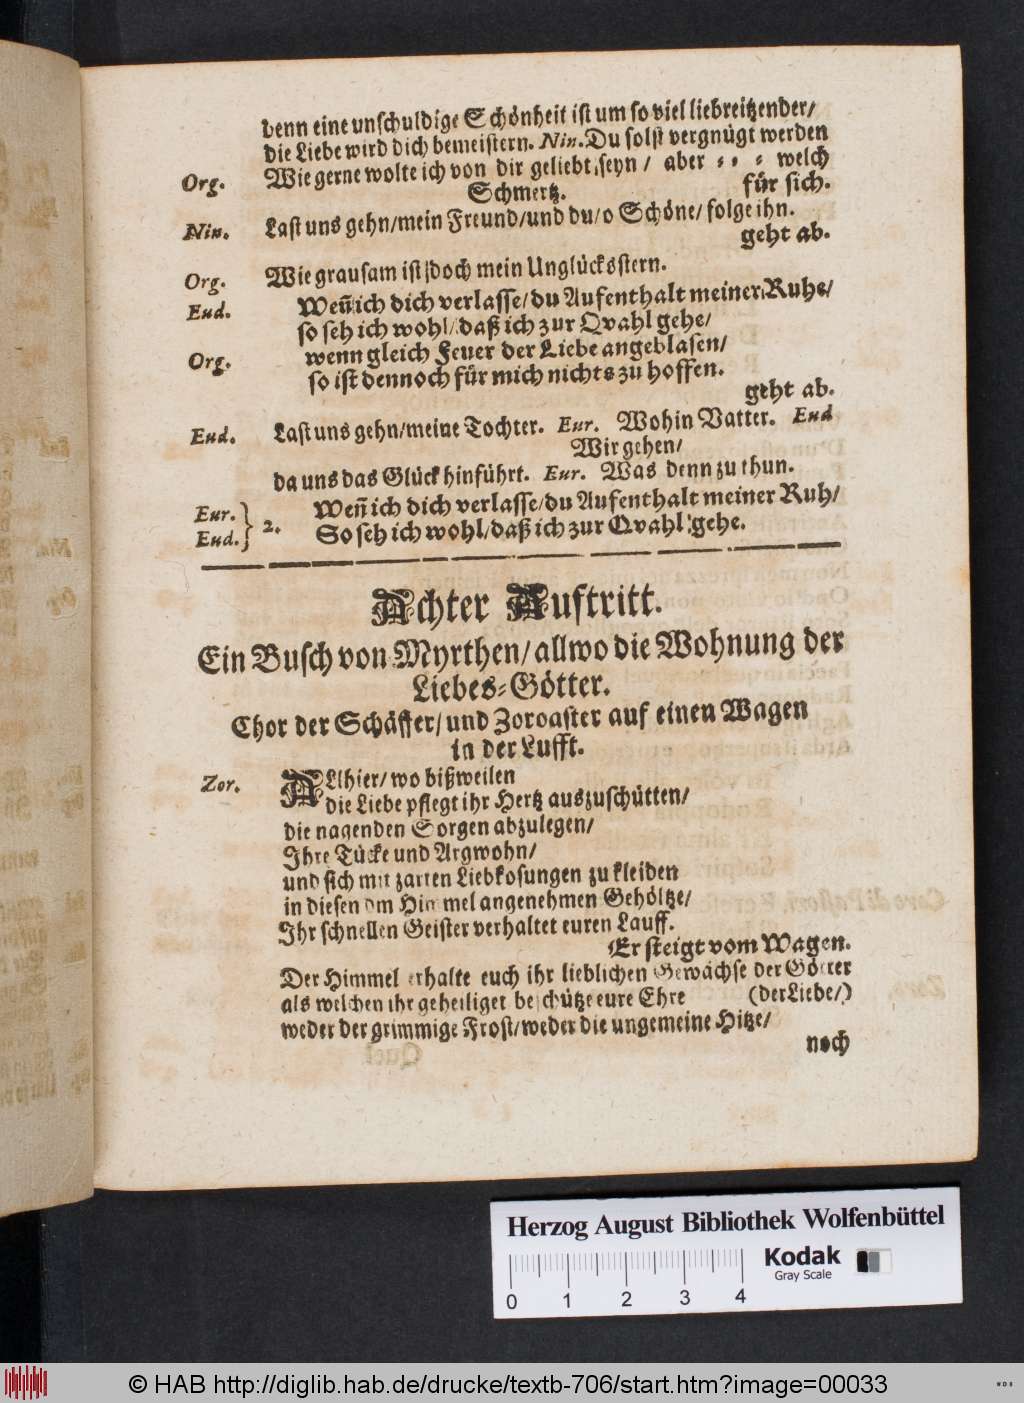 denn eine unschuldige Schönheit ist um so viel liebreitzender/
die Liebe wird dich bemeistern. Nin. Du solst vergnügt werden
Org. Wie gerne wolte ich von dir geliebt seyn / aber = = = welch
Schmertz. für sich.
Nin. Last uns gehn/mein Freund/und du/o Schöne/ folge ihn.
geht ab.
Org. Wie grausam ist doch mein Unglücksstern.
Eud. Weñ ich dich verlasse/du Aufenthalt meiner Ruhe/
so seh ich wohl/daß ich zur Qvahl gehe/
Org. wenn gleich Feuer der Liebe angeblasen/
so ist dennoch für mich nichts zu hoffen.
geht ab.
Eud. Last uns gehn/meine Tochter. Eur. Wohin Vatter. Eud
Wir gehen/
da uns das Glück hinführt. Eur. Was denn zu thun.
Eur. } 2. Weñ ich dich verlasse/du Aufenthalt meiner Ruh/
Eud. So seh ich wohl/daß ich zur Qvahl gehe.
Achter Auftritt.
Ein Busch von Myrthen/allwo die Wohnung der
Liebes=Götter.
Chor der Schäffer/und Zoroaster auf einen Wagen
in der Lufft.
Zor. ALlhier/wo bißweilen
die Liebe pflegt ihr Hertz auszuschütten/
die nagenden Sorgen abzulegen/
Ihre Tücke und Argwohn/
und sich mit zarten Liebkosungen zu kleiden
in diesen dem Himmel angenehmen Gehöltze/
Ihr schnellen Geister verhaltet euren Lauff.
Er steigt vom Wagen.
Der Himmel erhalte euch ihr lieblichen Gewächse der Götter
als welchen ihr geheiliget beschütze eure Ehre (der Liebe/)
weder der grimmige Frost/weder die ungemeine Hitze/
noch
Herzog August Bibliothek Wolfenbüttel
Kodak
Gray Scale
0 1 2 3 4
© HAB http://diglib.hab.de/drucke/textb-706/start.htm?image=00033